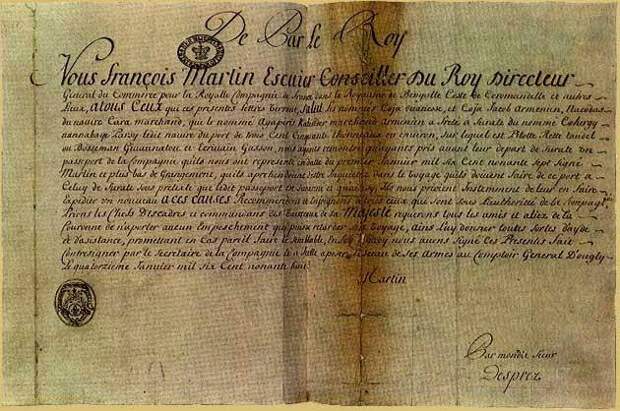 De Par le Roy
Vous François Martin Escuier Conseiller Du Roy Directeur
General du Commerce pour la Royalle Compagnie de France dans le Royaume de Bengalle Coste de Coromandelle et autres
Lieux, atous Ceux qui ces presentes lettres Verront, Salut les nommés Coja et Coja Jacob Armenien, Nacodas
du navire Cara marchand, que le nommé Marchand Armenien a Freté a Surate du nommé
ledit navire du port de trois Cent Cinquante thonneaux ou environ, sur lequel est Pilotte
ou Bosseman et Ecrivain Gasson, nous ayants remontré quayants pris avant leur depart de Surate un
passport de la Compagnie quils nous ont representé en datte du premier Janvier mil six Cent nonante sept signé
Martin et plus bas de Grangemont, quils aprehendent destre Inquietés dans le Voyage quils doivent faire de ce port a
Celuy de Surate sous pretexte que ledit passeport est Suranné et Ils nous prioient Instamment de leur en faire
Expedier un nouveau aces causes Recommendons et Enjoignons a tous ceux qui sont sous Lauthorité de la Compagnie
Prions les Chefs Descadres et commandans des Vaisseaux de sa Majesté requerons tous les amis et aliez de la
Couronne de naporter aucun Empeschement qui puisse retarder son Voyage, ains Luy donner toutes sortes dayde
et dasistance, promettant en Cas pareil faire le semblable, En foy Dequoy nous avons Signé Ces Presentes fait
Contresigner par le Secretaire de la Compagnie et a Icelle aposer le Sceau de Ses Armes au Comptoir General Dougly
Le quatorzieme Janvier mil six Cent nonante huit
Martin
Par mondit sieur
Desprez